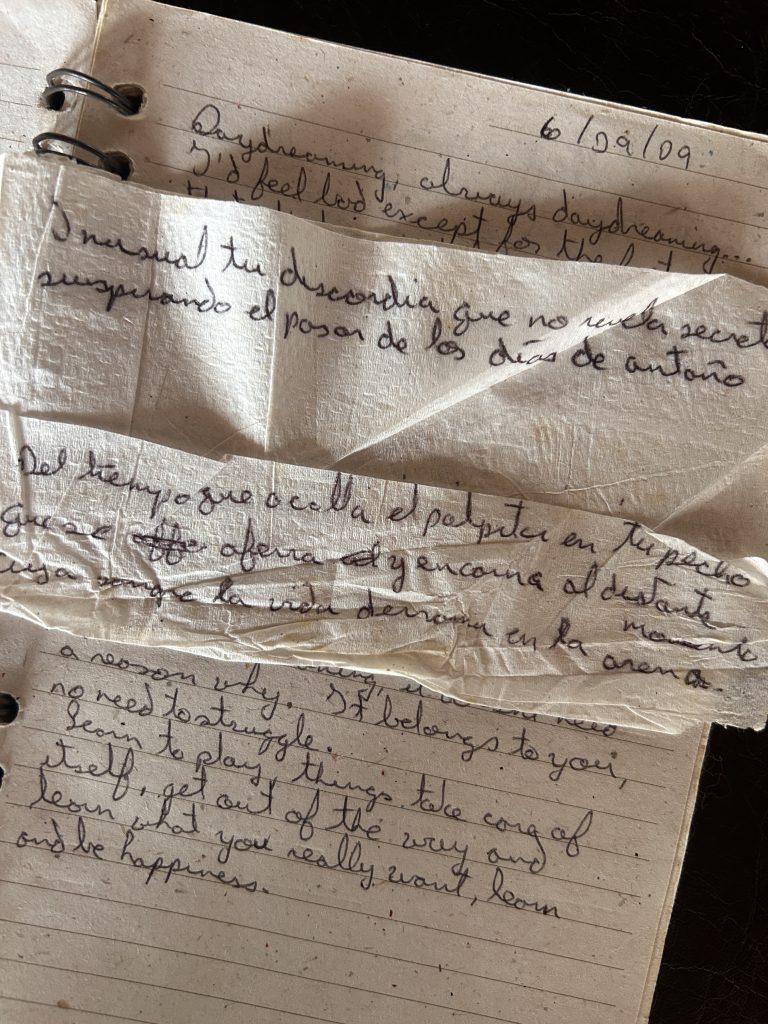 6/09/09.
Daydreaming, always daydreaming...
I'd feel bad except for the
Inusual tu discordia que no revela secret
suspirando el pasar de los días de antaño
Del tiempo que acalla el palpitar en tu pecho
que se aferra y encarna al distante
momento
cuya sangre la vida derrama en la arena.
need
a reason why. It belongs to you,
no need to struggle.
Learn to play, things take care of
itself, get out of the way and
learn what you really want, learn
and be happiness.